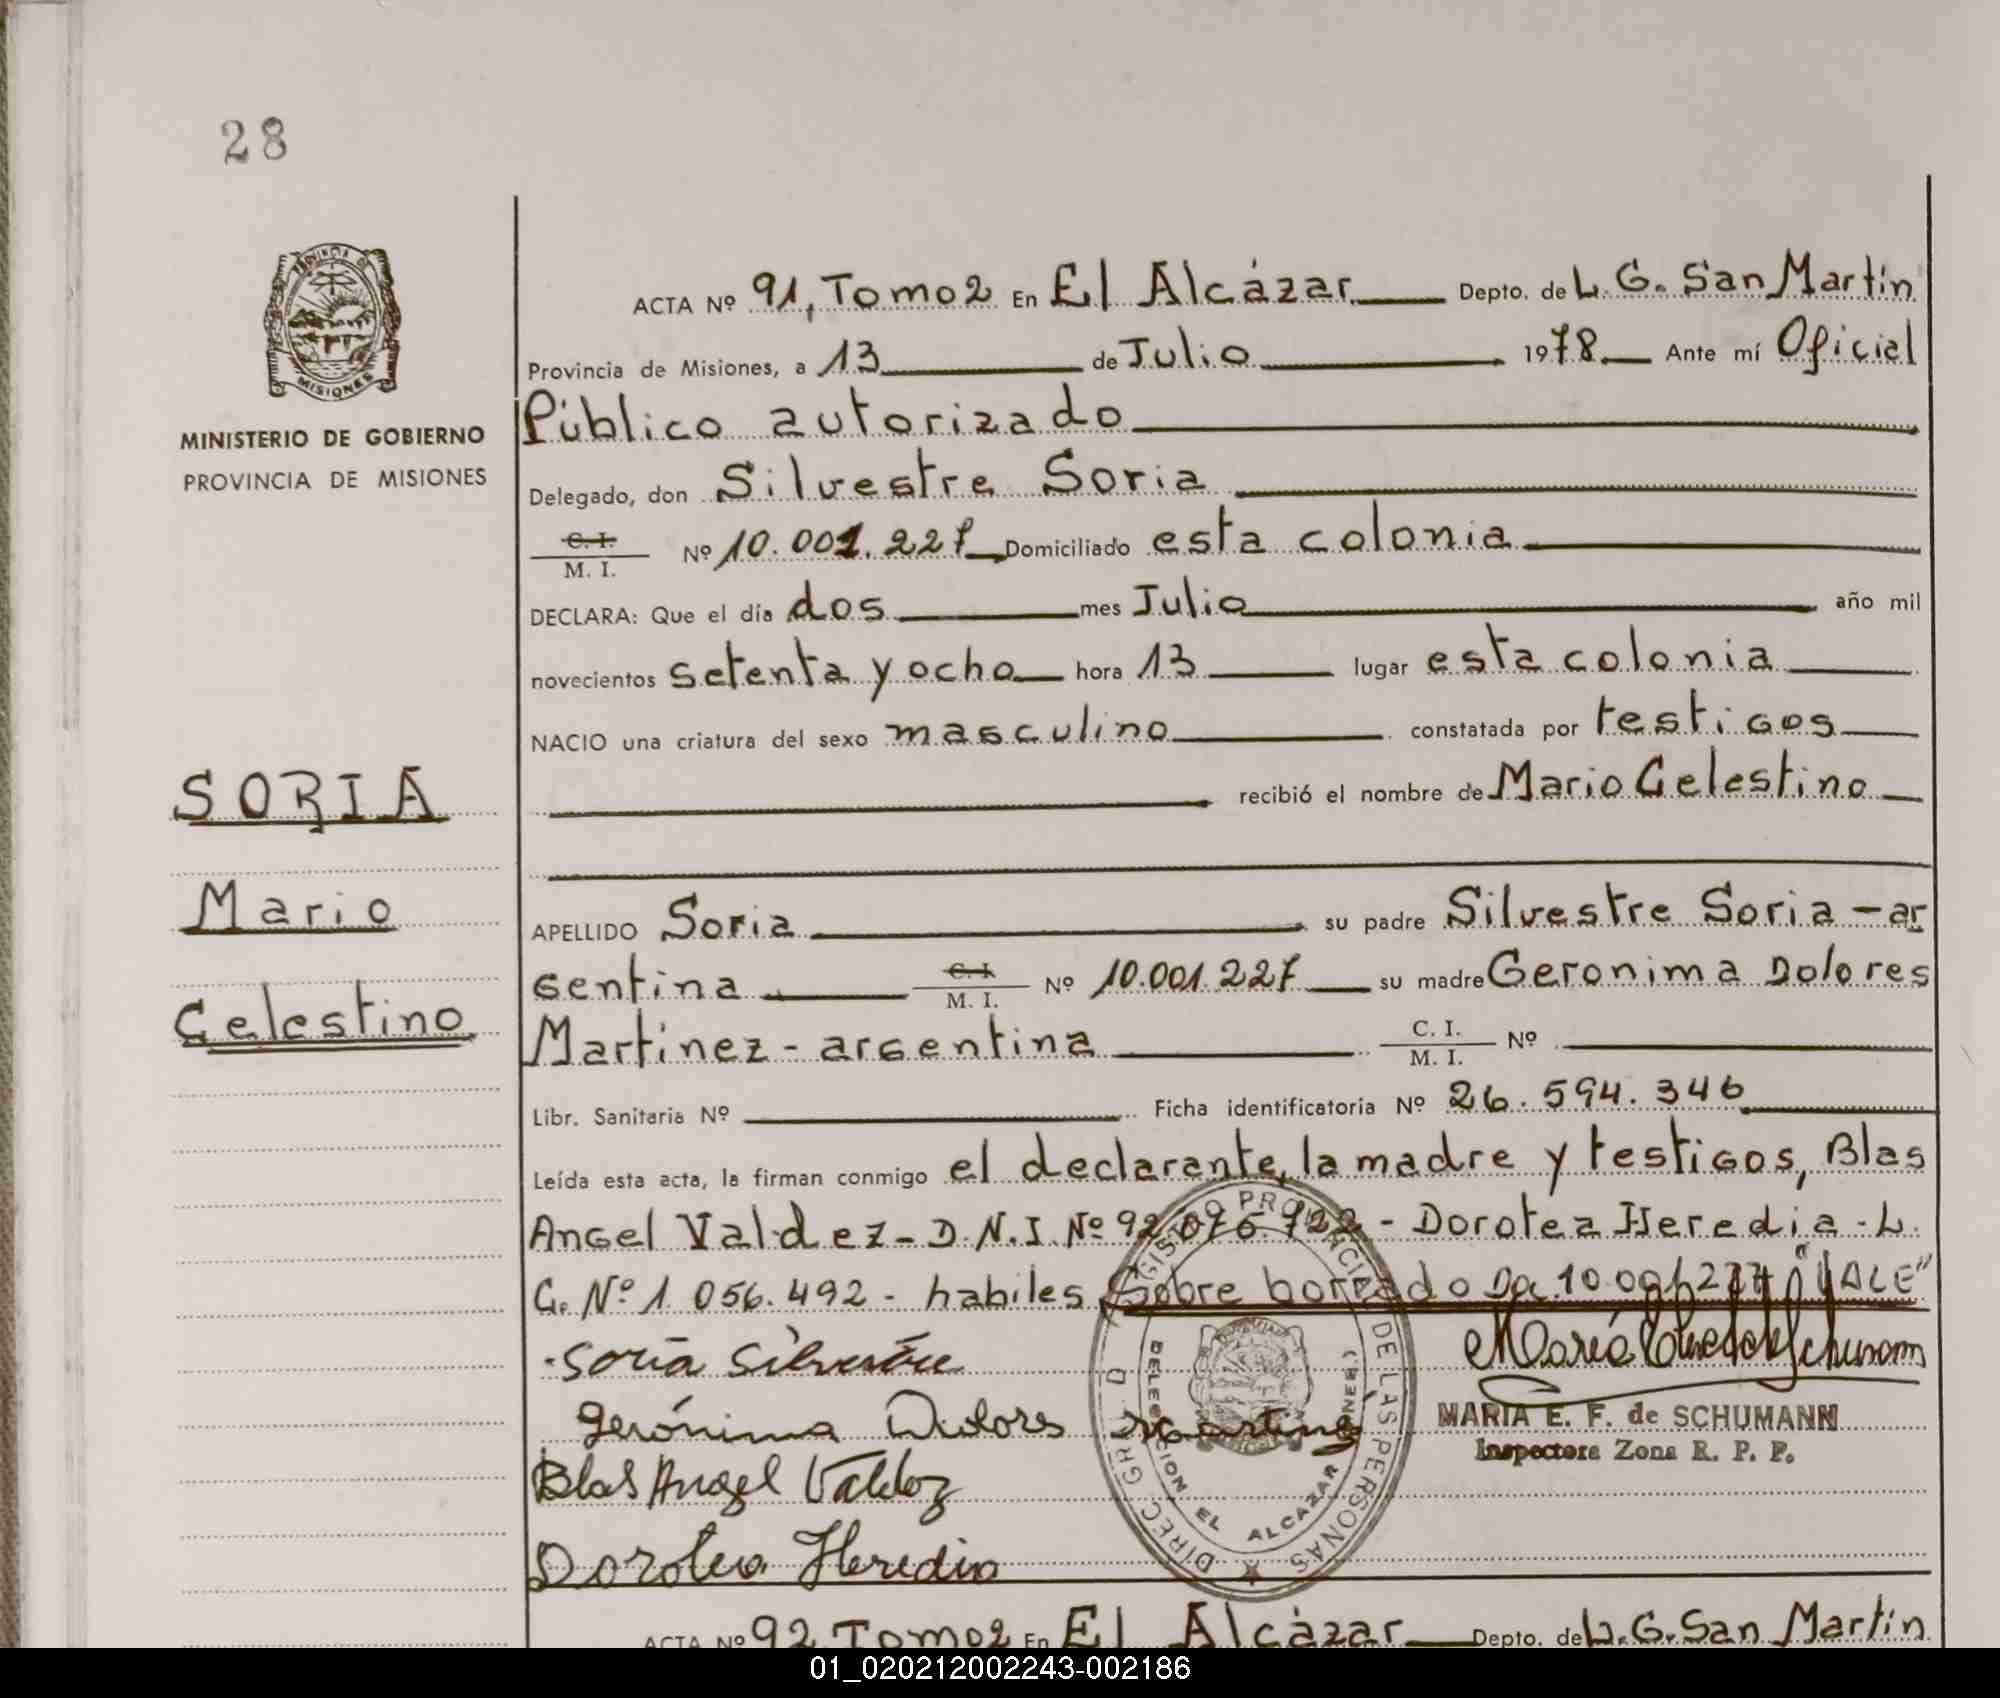 28
PROVINCIA DE
MISIONES
MINISTERIO DE GOBIERNO
PROVINCIA DE MISIONES
SORIA
Mario
Celestino
ACTA Nº 91, Tomo 2 En El Alcázar Depto. de L. G. San Martín
Provincia de Misiones, a 13 de Julio 1978 Ante mí Oficial
Público autorizado
Delegado, don Silvestre Soria
C. I.
M. I. Nº 10.001.227 Domiciliado esta colonia
DECLARA: Que el día dos mes Julio año mil
novecientos setenta y ocho hora 13 lugar esta colonia
NACIO una criatura del sexo masculino constatada por testigos
recibió el nombre de Mario Celestino
APELLIDO Soria su padre Silvestre Soria - ar
gentina C. I.
M. I. Nº 10.001.227 su madre Geronima Dolores
Martinez - argentina C. I.
M. I. Nº
Libr. Sanitaria Nº Ficha identificatoria Nº 26.594.346
Leída esta acta, la firman conmigo el declarante, la madre y testigos, Blas
Angel Valdez - D.N.I. Nº 92.076.722 - Dorotea Heredia - L.
C. Nº 1.056.492 - habiles Sobre borrado "VALE"
Soria Silvestre
Gerónima Dolores Martinez
Blas Angel Valdez
Dorotea Heredia
MARIA E. F. de SCHUMANN
Inspectora Zona R. P. P.
DELEGACION EL ALCAZAR
ACTA Nº 92 Tomo 2 En El Alcázar Depto. de L. G. San Martín
01_020212002243-002186